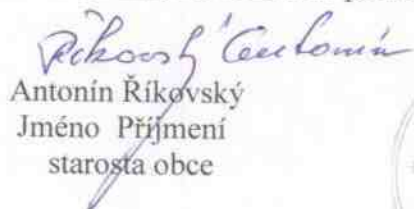 Říkovský Antonín
Antonín Říkovský
Jméno Příjmení
starosta obce